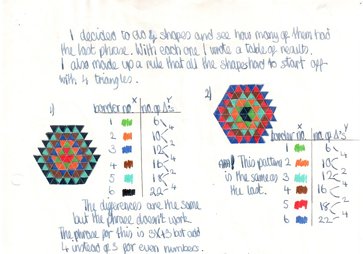 I decided to do 4 shapes and see how many of them had
the last phrase. With each one I wrote a table of results.
I also made up a rule that all the shapes had to start off
with 4 triangles.
1)
border no. X no. of Δ's Y
1 6
2 10
3 12
4 16
5 18
6 22
4
2
4
2
4
The differences are the same
but the phrase doesn't work
The phrase for this is 3X+3 but add
4 instead of 3 for even numbers.
2)
border no. X no. of Δ's Y
1 6
2 10
3 12
4 16
5 18
6 22
4
2
4
2
4
! This pattern
is the same as
the last.